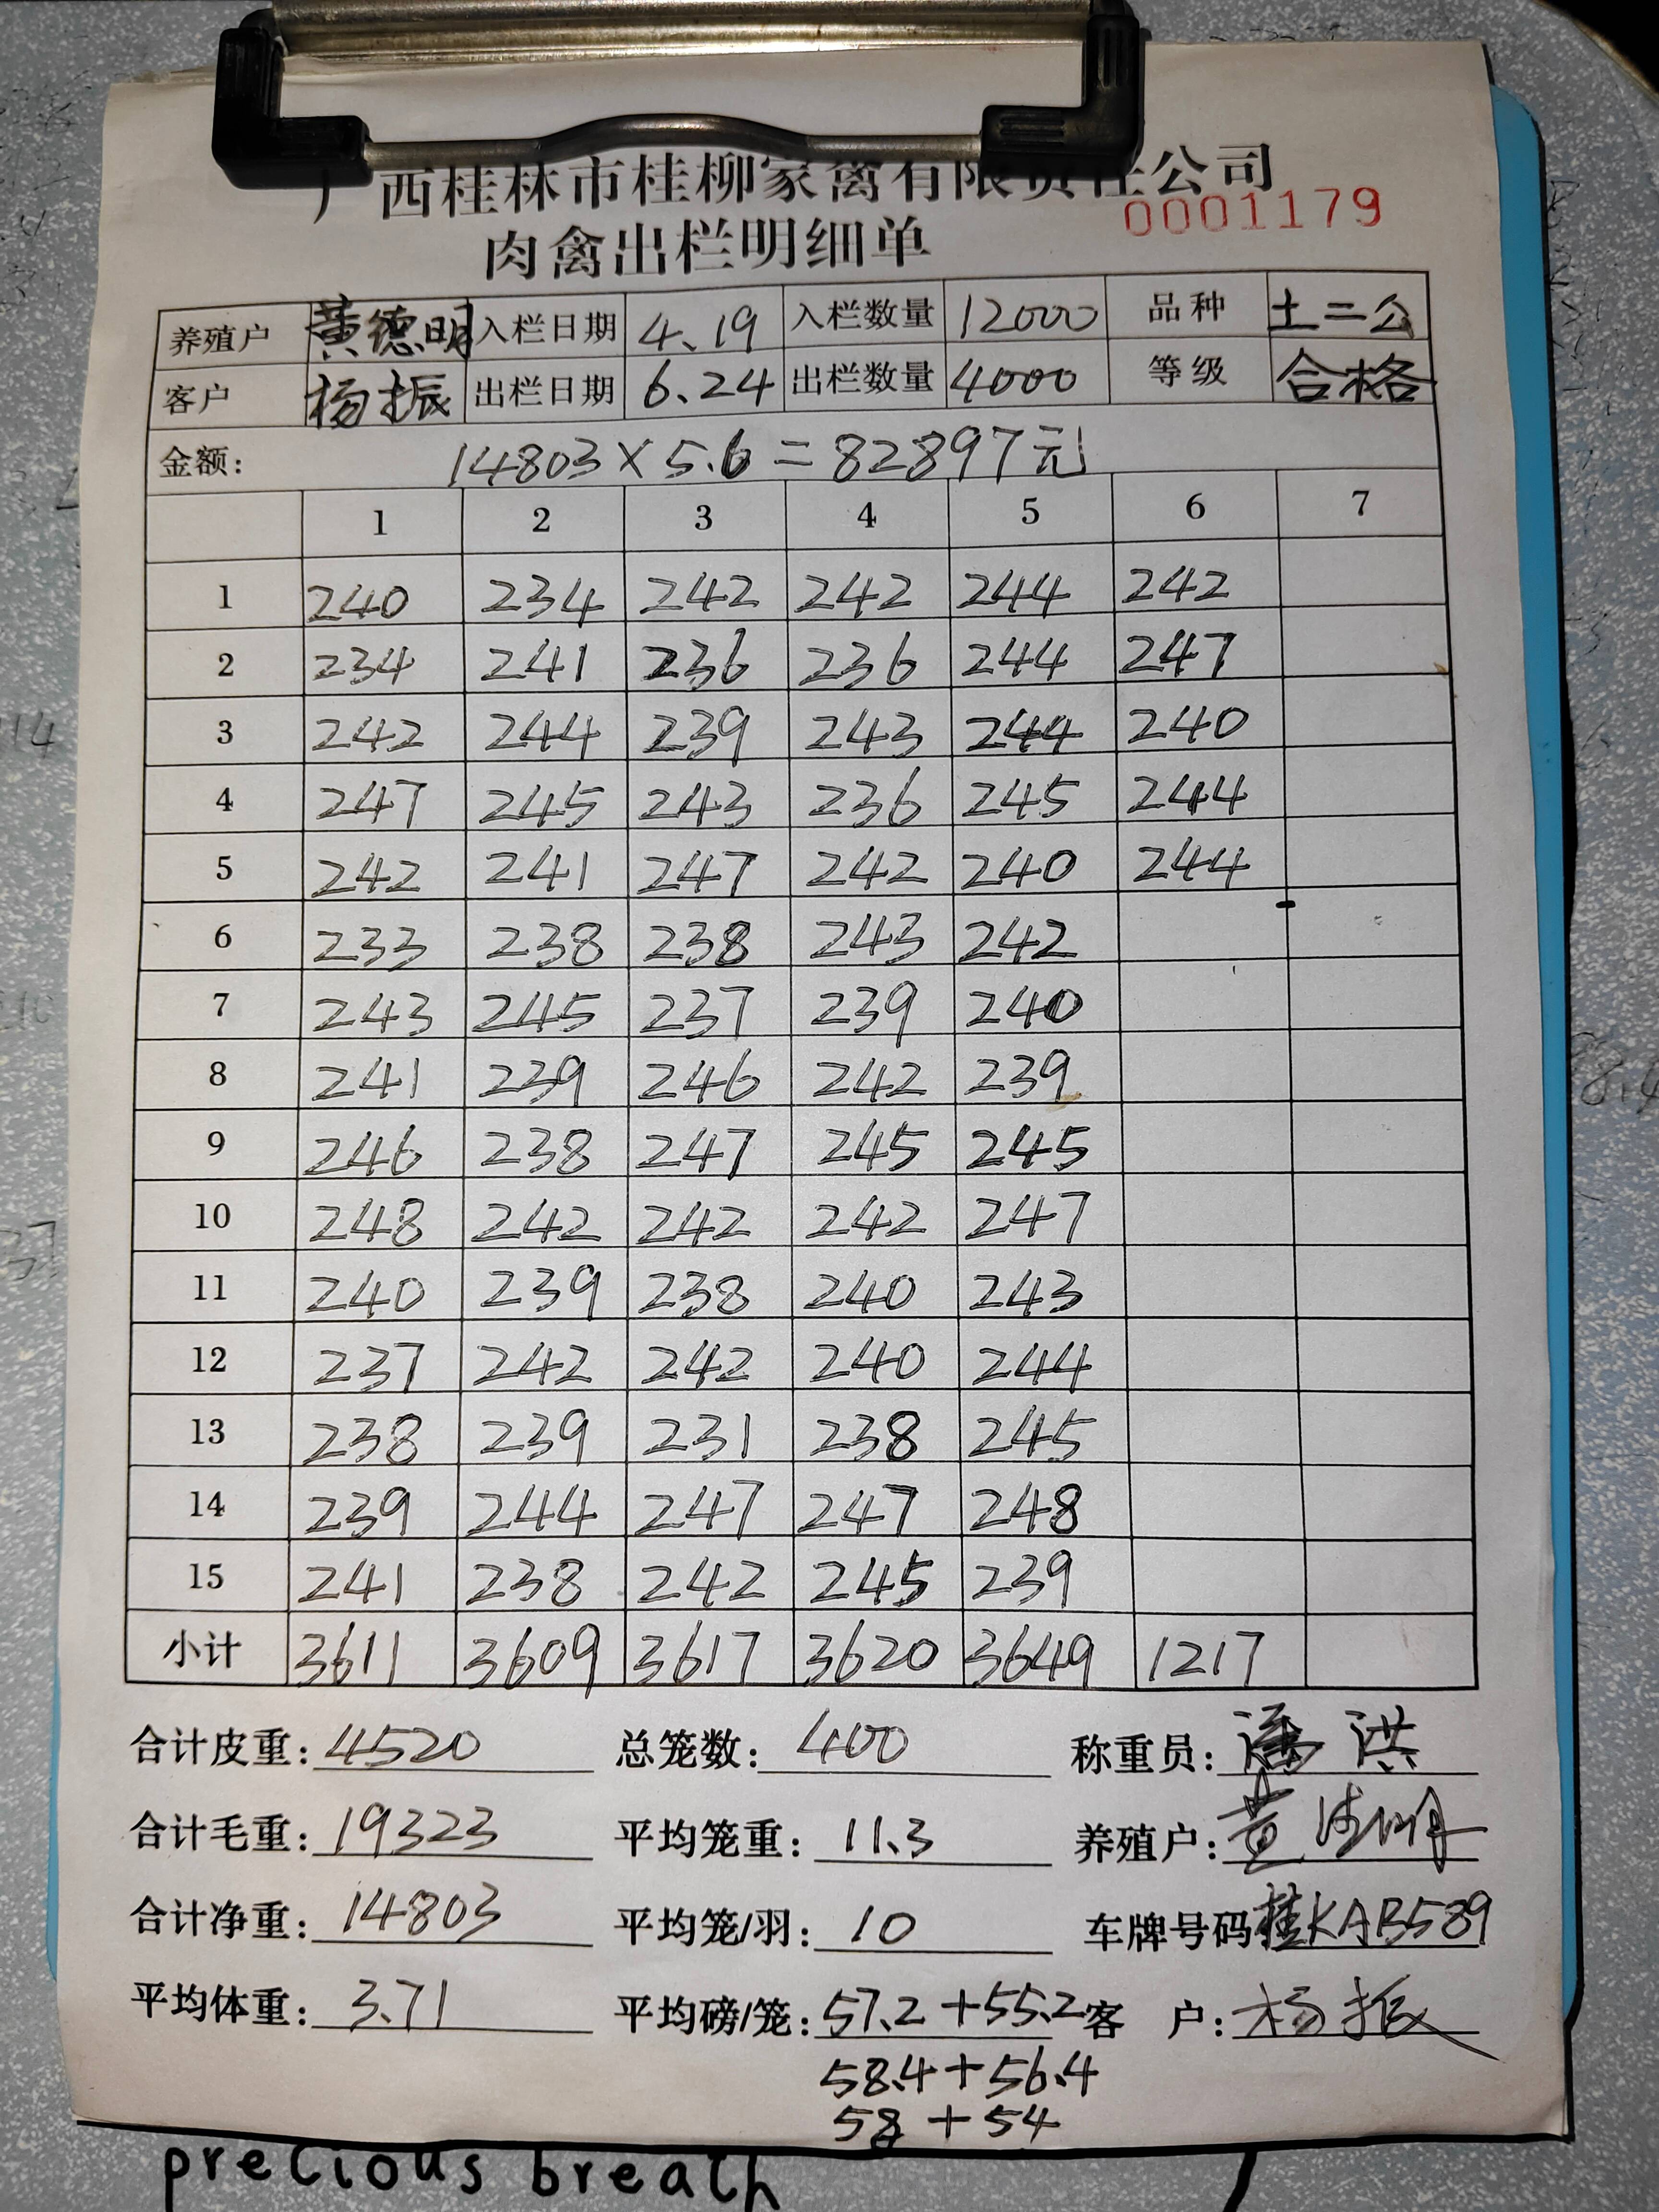 广西桂林市桂柳家禽有限责任公司
0001179
肉禽出栏明细单
养殖户 黄德明 入栏日期 4.19 入栏数量 12000 品种 土二公
客户 杨振 出栏日期 6.24 出栏数量 4000 等级 合格
金额: 14803×5.6=82897元
1 2 3 4 5 6 7
1 240 234 242 242 244 242
2 234 241 236 236 244 247
3 242 244 239 243 244 240
4 247 245 243 236 245 244
5 242 241 247 242 240 244
6 233 238 238 243 242
7 243 245 237 239 240
8 241 239 246 242 239
9 246 238 247 245 245
10 248 242 242 242 247
11 240 239 238 240 243
12 237 242 242 240 244
13 238 239 231 238 245
14 239 244 247 247 248
15 241 238 242 245 239
小计 3611 3609 3617 3620 3649 1217
合计皮重: 4520 总笼数: 400 称重员: 潘洪
合计毛重: 19323 平均笼重: 11.3 养殖户: 黄德明
合计净重: 14803 平均笼/羽: 10 车牌号码 桂KAB589
平均体重: 3.71 平均磅/笼: 57.2+55.2 客户: 杨振
58.4+56.4
58+54
precious breath